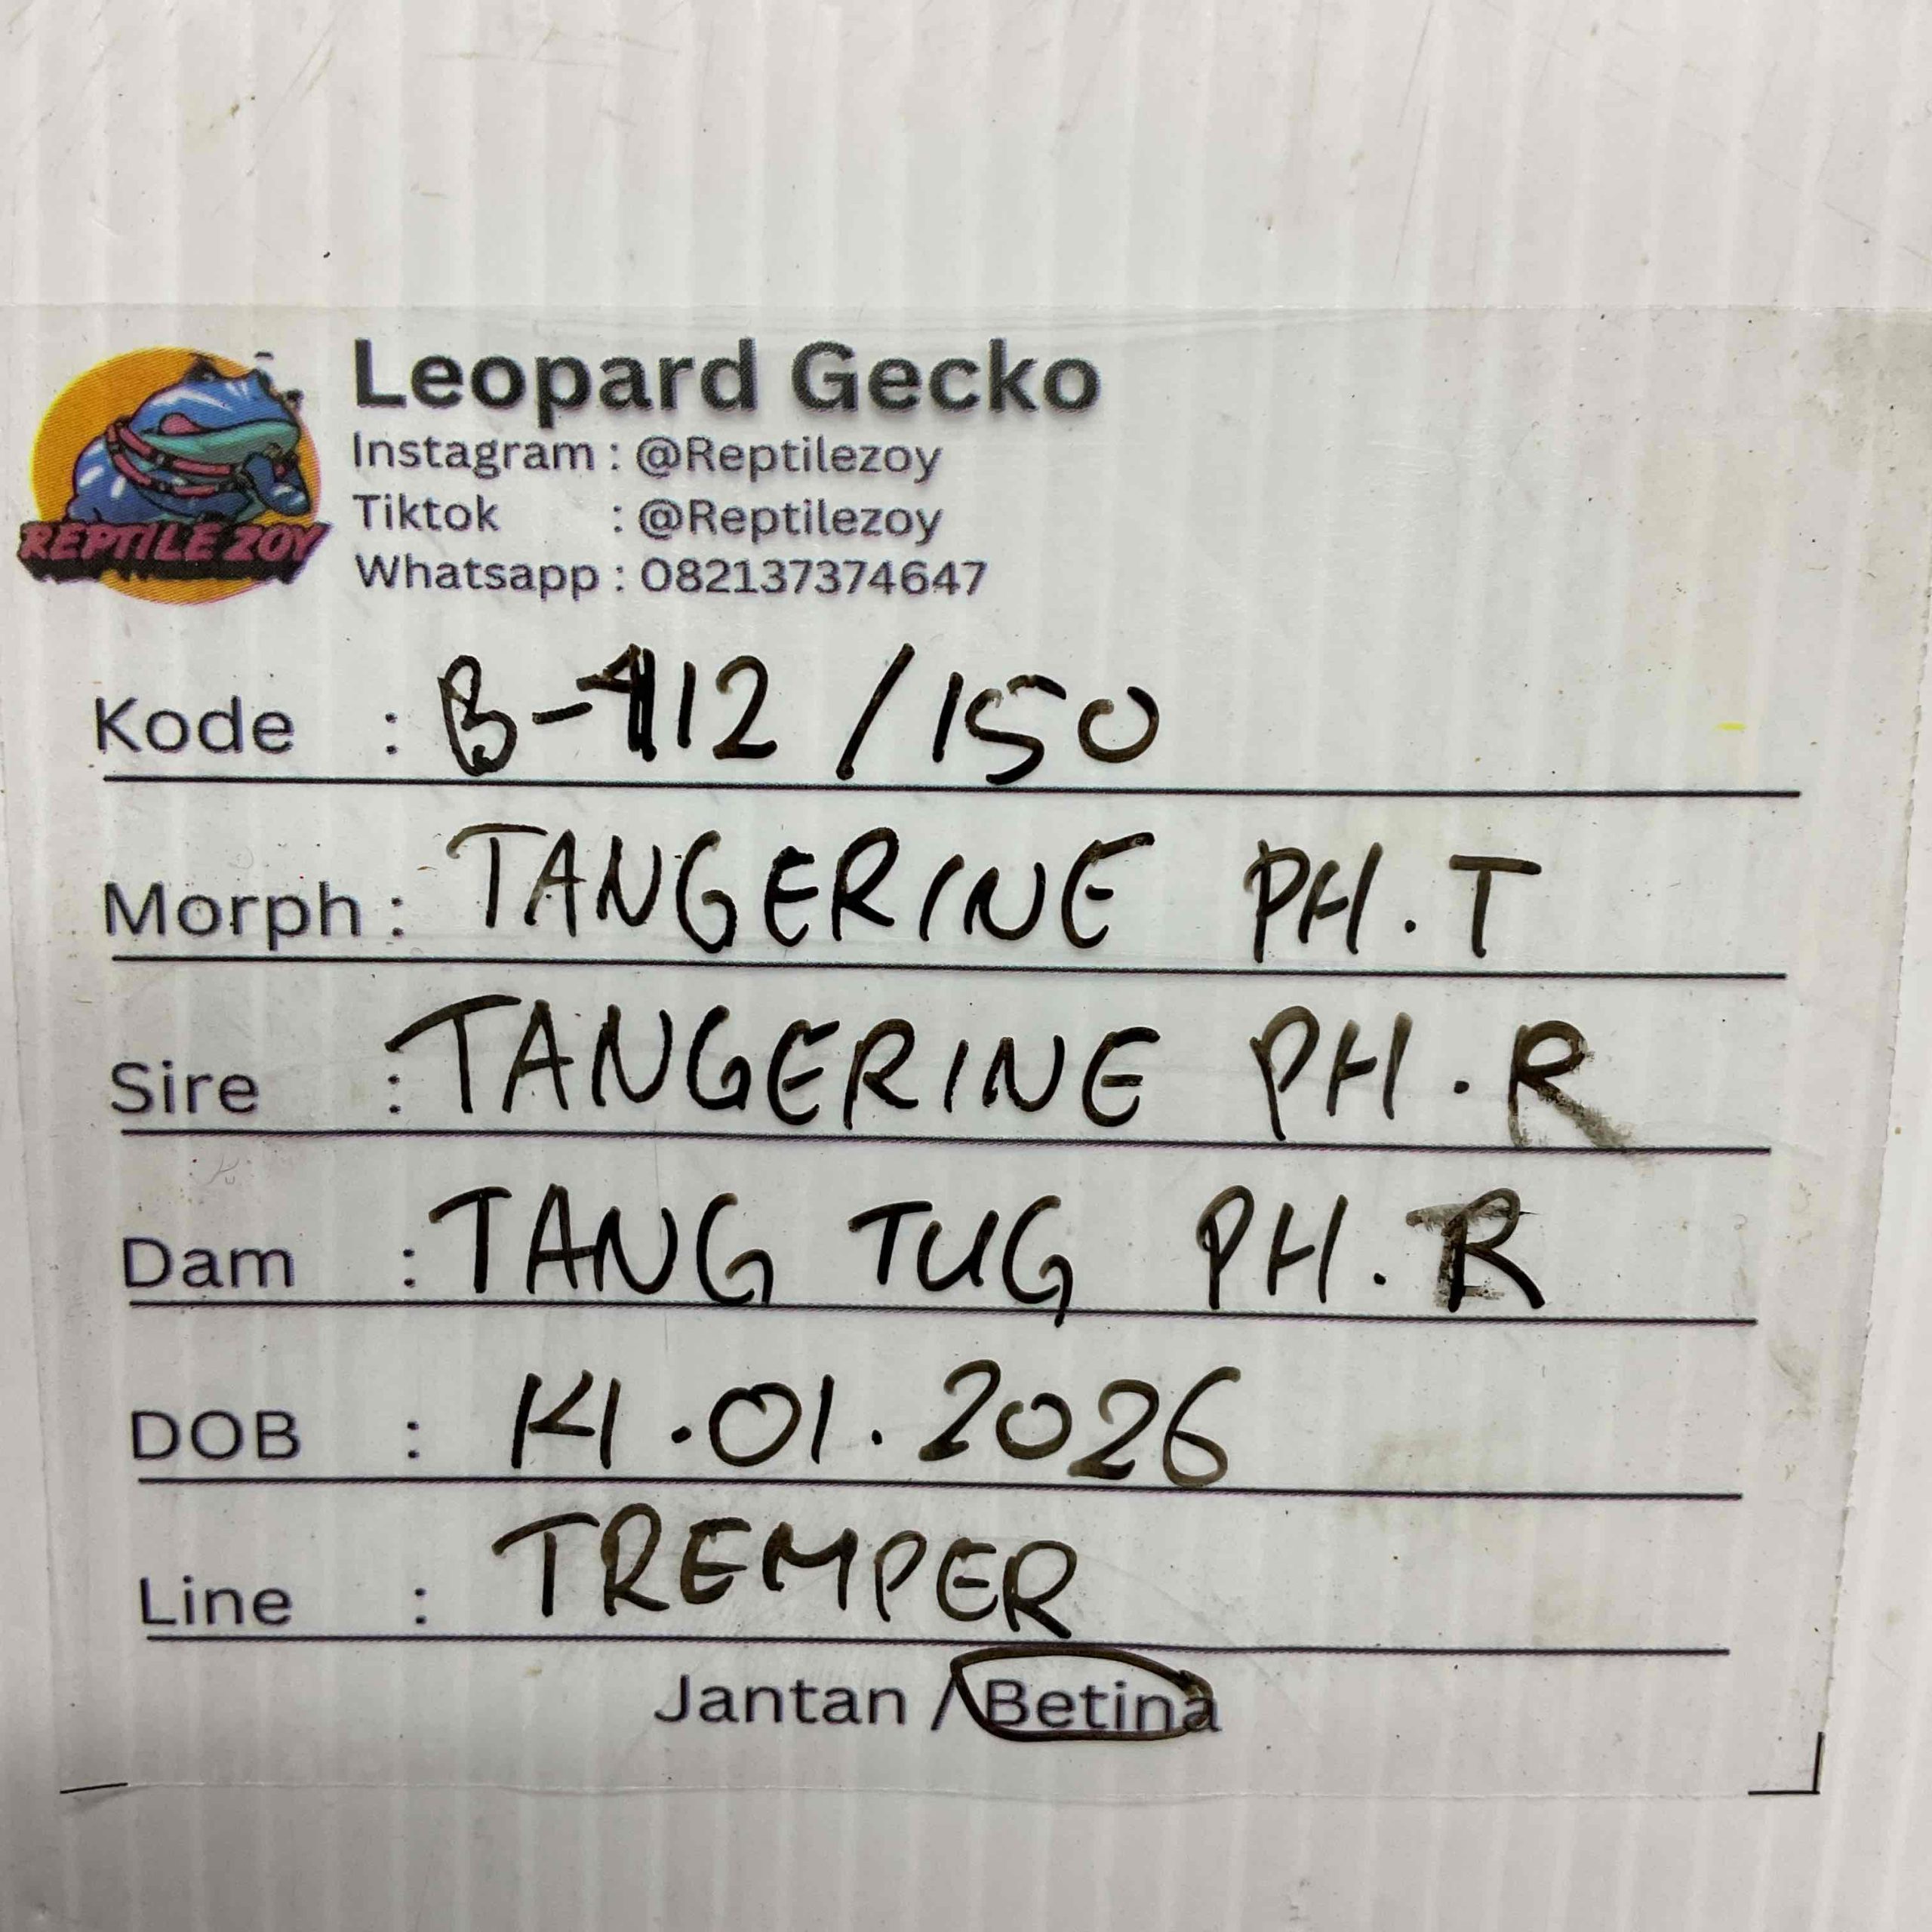 REPTILE ZOY
Leopard Gecko
Instagram : @Reptilezoy
Tiktok : @Reptilezoy
Whatsapp : 082137374647
Kode :
Morph : TANGERINE PH.T
Sire : TANGERINE PH.R
Dam : TANG TUG PH.R
DOB : 14.01.2026
Line : TREMPER
Jantan / Betina